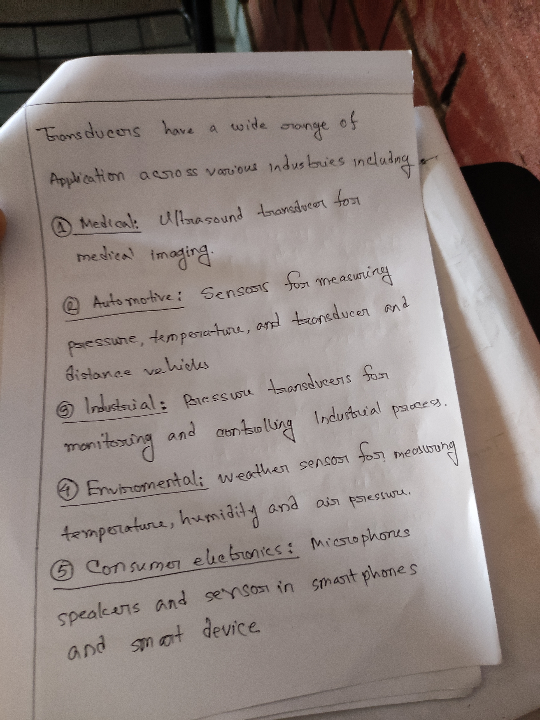 Transducers have a wide range of
Application across various industries including
① Medical: Ultrasound transducer for
medical imaging.
② Automotive: Sensors for measuring
pressure, temperature, and transducer and
distance vehicles
③ Industrial: Pressure transducers for
monitoring and controlling Industrial process.
④ Enviromental: weather sensor for measuring
temperature, humidity and air pressure.
⑤ Consumer electronics: Microphones
speakers and sensor in smart phones
and smart device